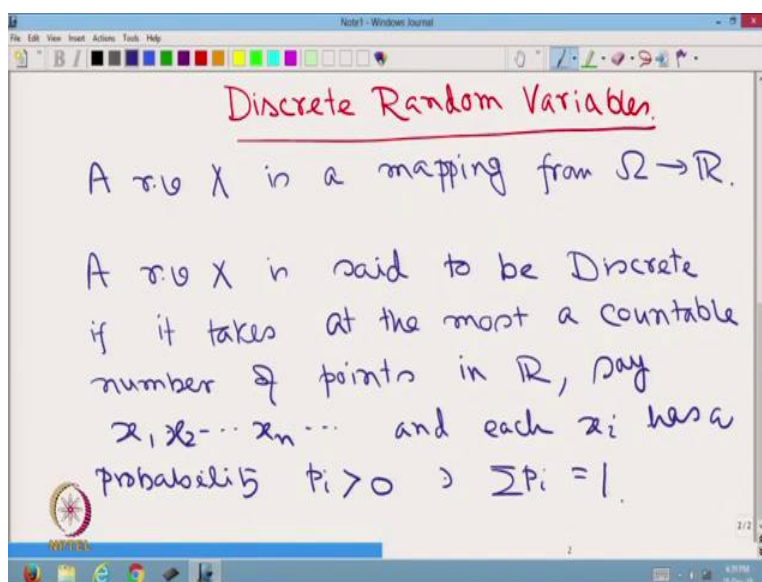 Note1 - Windows Journal
File Edit View Insert Actions Tools Help
B I
Discrete Random Variables.
A r.v X is a mapping from Ω → ℝ.
A r.v X is said to be Discrete
if it takes at the most a countable
number of points in ℝ, say
x₁ x₂ --- xₙ --- and each xᵢ has a
probability pᵢ > 0 ∋ Σpᵢ = 1.
NPTEL
2/2
2